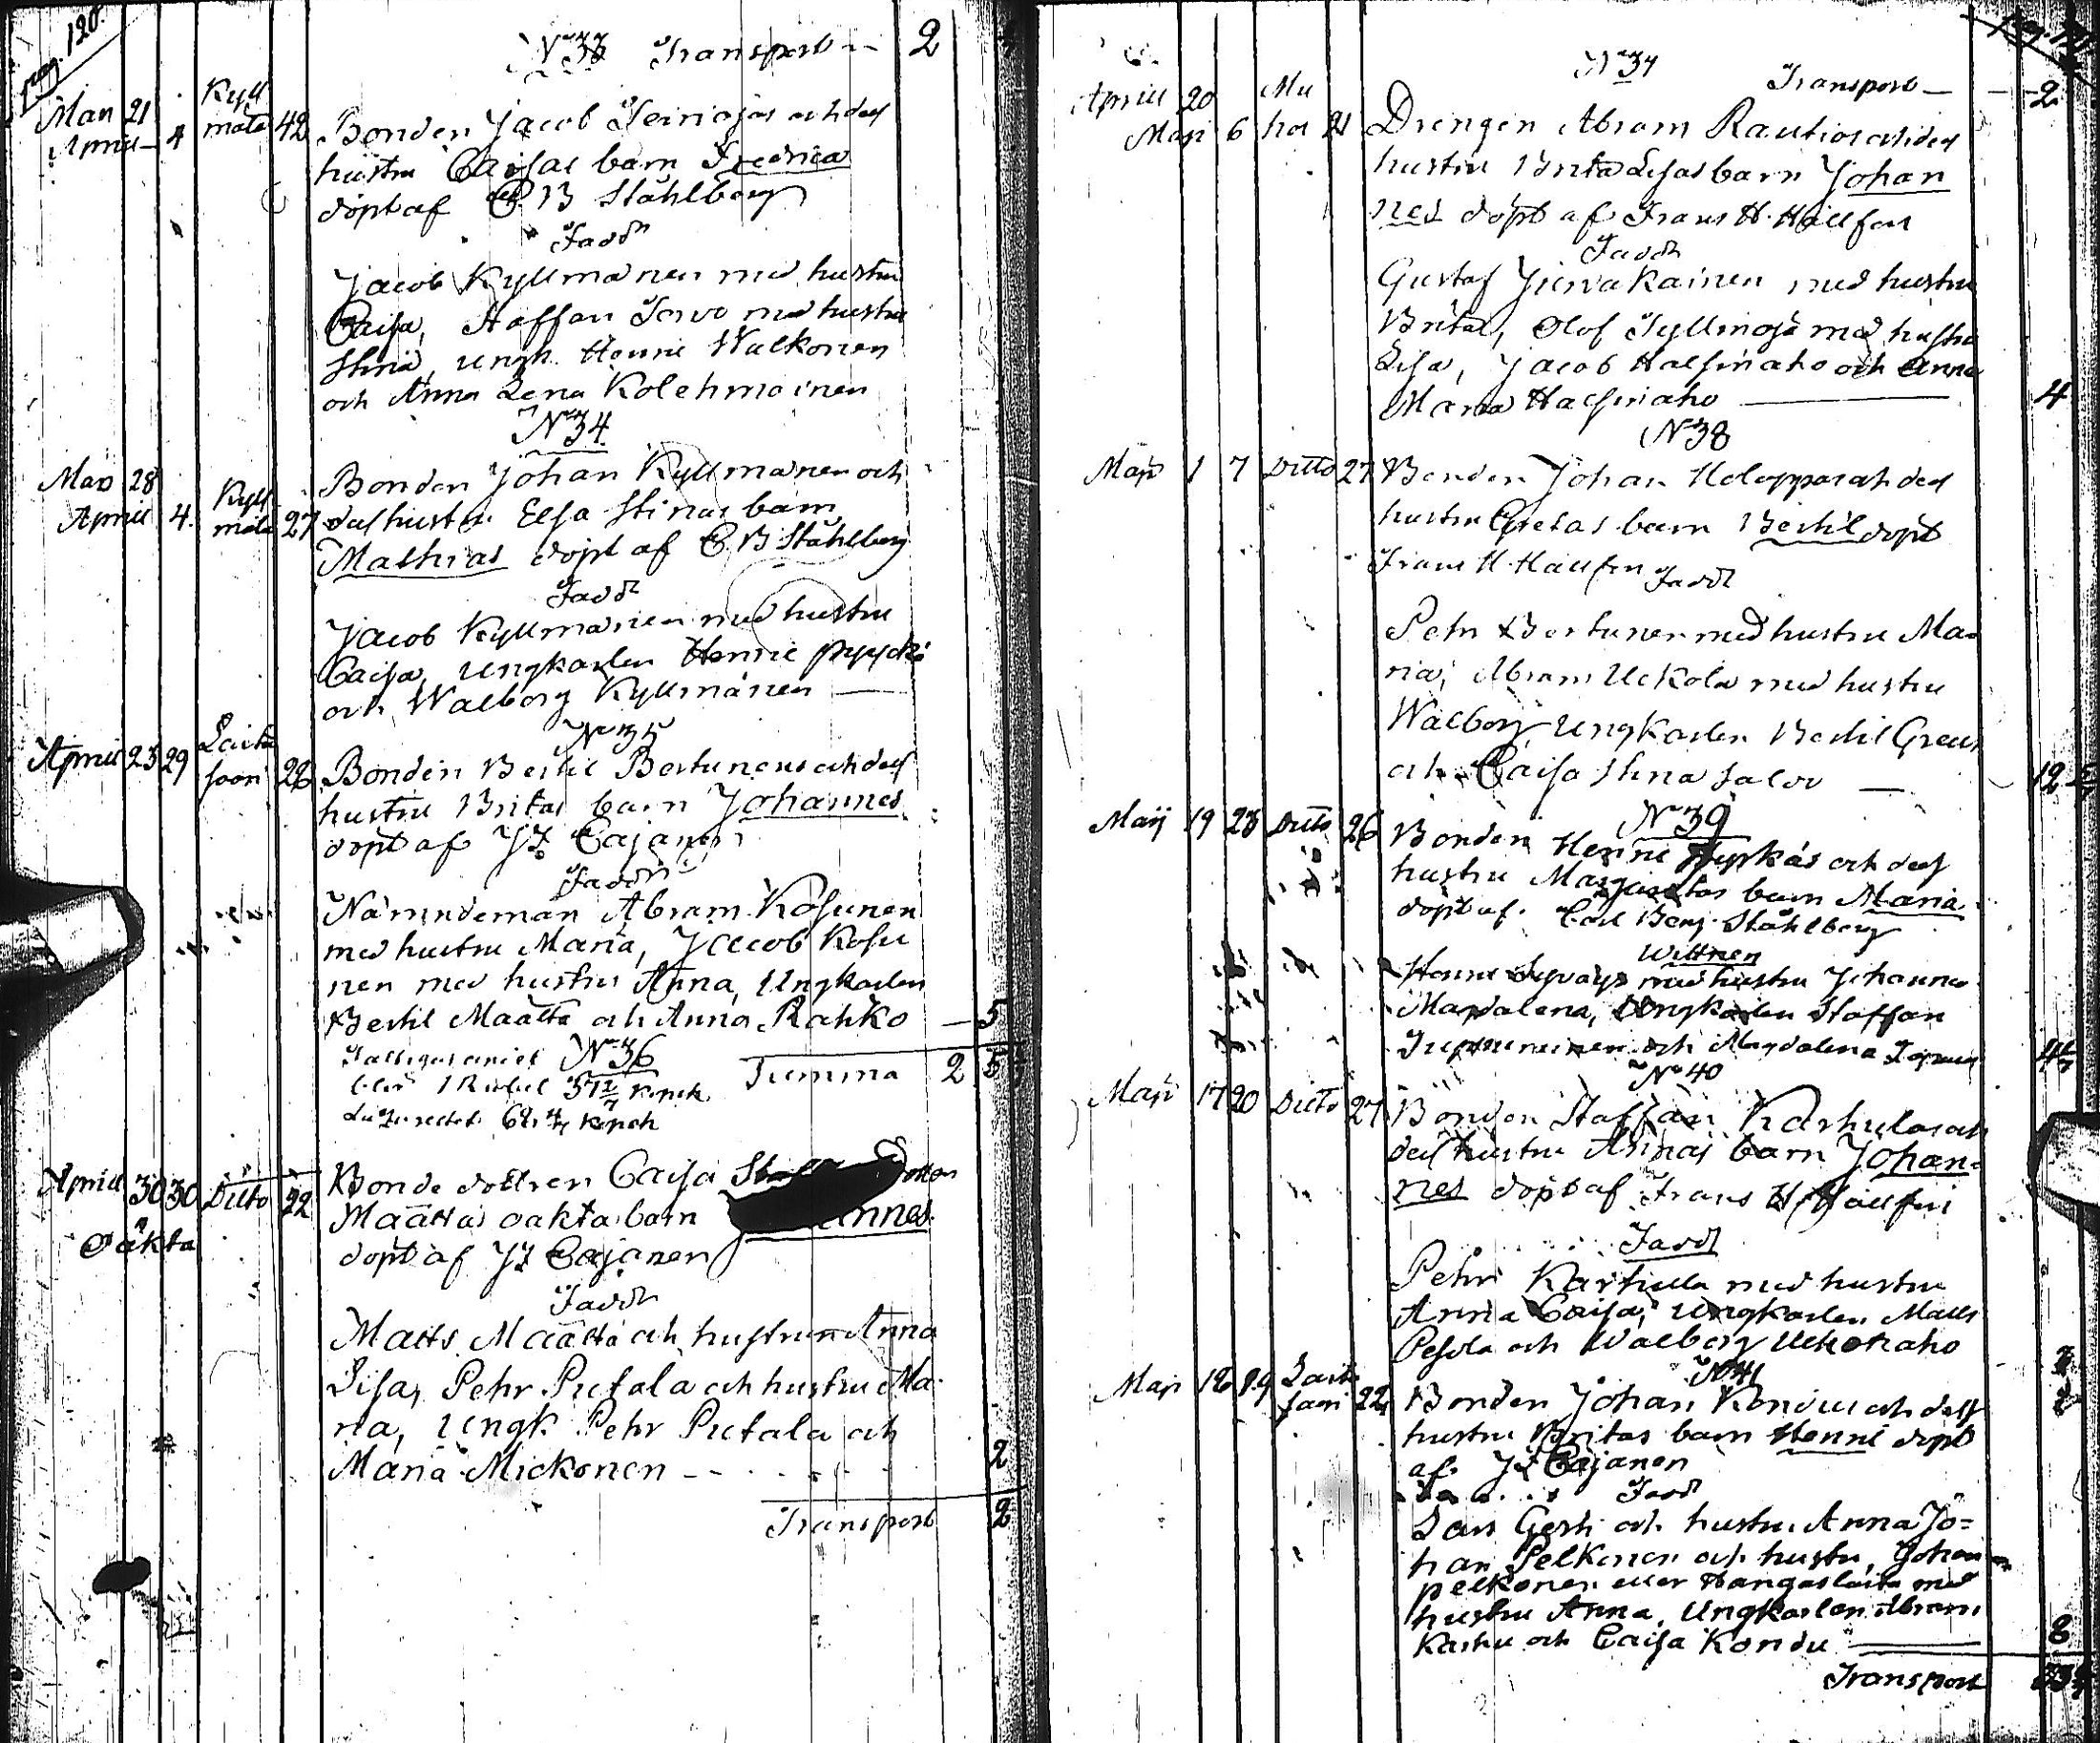 pag. 120.
N 33 Transport -- 2
Mars 21 Kyll
April 4 mälä 42 Bonden Jacob Teiriojas och des
hustru Caisas barn Fredrica
döpt af C B Ståhlberg
Fadd
Jacob Kyllmänen med hustru
Caisa, Staffan Servo med hustru
Stina, ungk. Henric Walkonen
och Anna Lena Kolehmainen
N 34
Mars 28 Bonden Johan Kyllmänen och
April 4. Kyll mälä 27 des hustru Elsa Stinas barn
Mathias döpt af C B Ståhlberg
Fadd
Jacob Kyllmänen med hustru
Caisa, Ungkarlen Henric pyyckö
och Walborg Kyllmänen
N 35
April 23 29 Laita
saari 28 Bonden Bertil Bertunens och des
hustru Britas barn Johannes
döpt af JF Cajanen
Fadd
Nämndeman Abram Kosunen
med hustru Maria, Jacob Kosu
nen med hustru Anna, Ungkarlen
Bertil Määttä och Anna Rahko — 5
N 36
1 Rubel 51 2/7 kopek Summa 2 5
68 4/7 kopek
April 30 30 Ditto 22 Bonde dottren Caisa dotter
Oäkta Määttäs oäkta barn
döpt af JF Cajanen
Fadd
Matts Määttä och hustrun Anna
Lisa, Pehr Pietala och hustru Ma
ria, Ungk. Pehr Pietala och
Maria Mickonen -- 2
Transport 2
N 37
April 20 Mu Transport — 2
Maji 6 hos 21 Drengen Abram Rautios och des
hustru Brita Lisas barn Johan
nes döpt af Frans H. Hällfors
Fadd
Gustaf Jurvakainen med hustru
Brita, Olof Syllinoja med hustru
Lisa, Jacob Halsinaho och Anna
Maria Halsinaho — 4
N 38
Maji 1 7 Ditto 27 Bonden Johan Holappas och des
hustru Gretas barn Bertil döpt
Frans H. Hällfors Fadd
Pehr Bertunen med hustru Ma
ria, Abram Uckola med hustru
Walborg Ungkarlen Bertil Greus
och Caisa Stina Salov — 12
N 39
Maij 19 23 Ditto 26 Bonden Henric Tyrkäs och des
hustru Margaretas barn Maria
döpt af Carl Benj. Ståhlberg
Wittnen
Henric med hustru Johanna
Magdalena, Ungkarlen Staffan
och Magdalena 4
N 40
Maji 17 20 Ditto 27 Bonden Staffan Karhulas och
des hustru Annas barn Johan-
nes döpt af Frans H Hällfors
Fadd
Pehr Karhula med hustru
Anna Caisa, Ungkarlen Matts
Pesola och Walborg Uckonaho
N 41
Maji 18 19 Laita
saari 22 Bonden Johan Kondus och des
hustru Britas barn Henric döpt
af JF Cajanen
Fadd
Lars Gerti och hustru Anna Jo-
han Pelkonen och hustru, Johan
pelkonen eller Hangaslaita med
hustru Anna, Ungkarlen Abram
Karhu och Caisa Kondu — 8
Transport